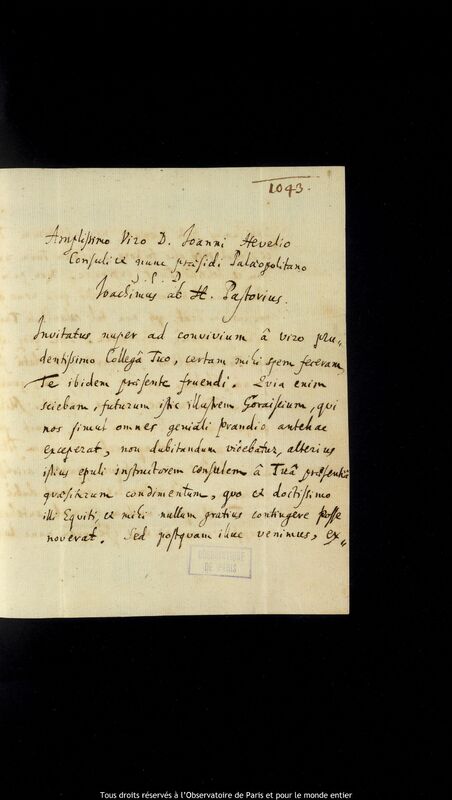 1043.
Amplissimo Viro D. Joanni Hevelio
Consuli et nunc præsidi Palæopolitano
S. P. D
Joachimus ab H. Pastorius.
Invitatus nuper ad convivium â viro pru„
dentissimo Collegâ Tuo, certam mihi spem feceram,
Te ibidem præsente fruendi. Quia enim
sciebam, futurum istic illustrem Goraissium, qui
nos simul omnes geniali prandio antehac
exceperat, non dubitandum videbatur, alterius
istius epuli instructorem consulem â Tuâ præsentiâ
quæsiturum condimentum, quo et doctissimo
illi Equiti, et mihi nullum gratius contingere posse
noverat. Sed postquam illuc venimus, ex„
OBSERVATOIRE
DE PARIS
Tous droits réservés à l'Observatoire de Paris et pour le monde entier